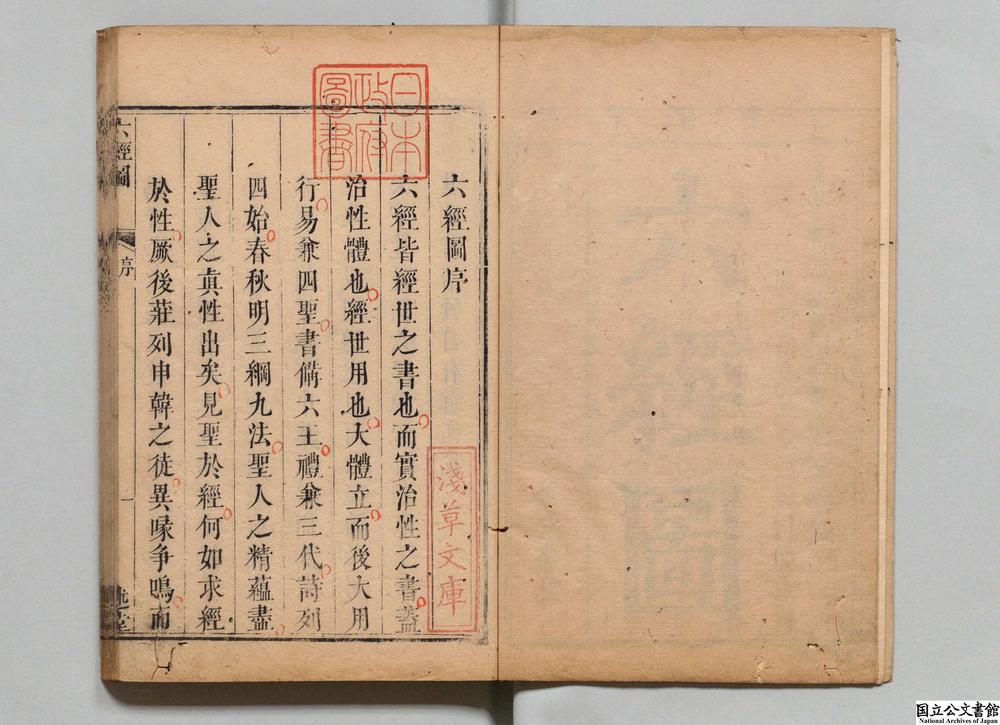 日本
政府
圖書
六經圖序
六經皆經世之書也而實治性之書蓋
治性體也經世用也大體立而後大用
行易兼四聖書備六王禮兼三代詩列
四始春秋明三綱九法聖人之精蘊盡
聖人之真性出矣見聖於經何如求經
於性厥後莊列申韓之徒異喙争鳴而
淺草文庫
六經圖
序
一
国立公文書館
National Archives of Japan